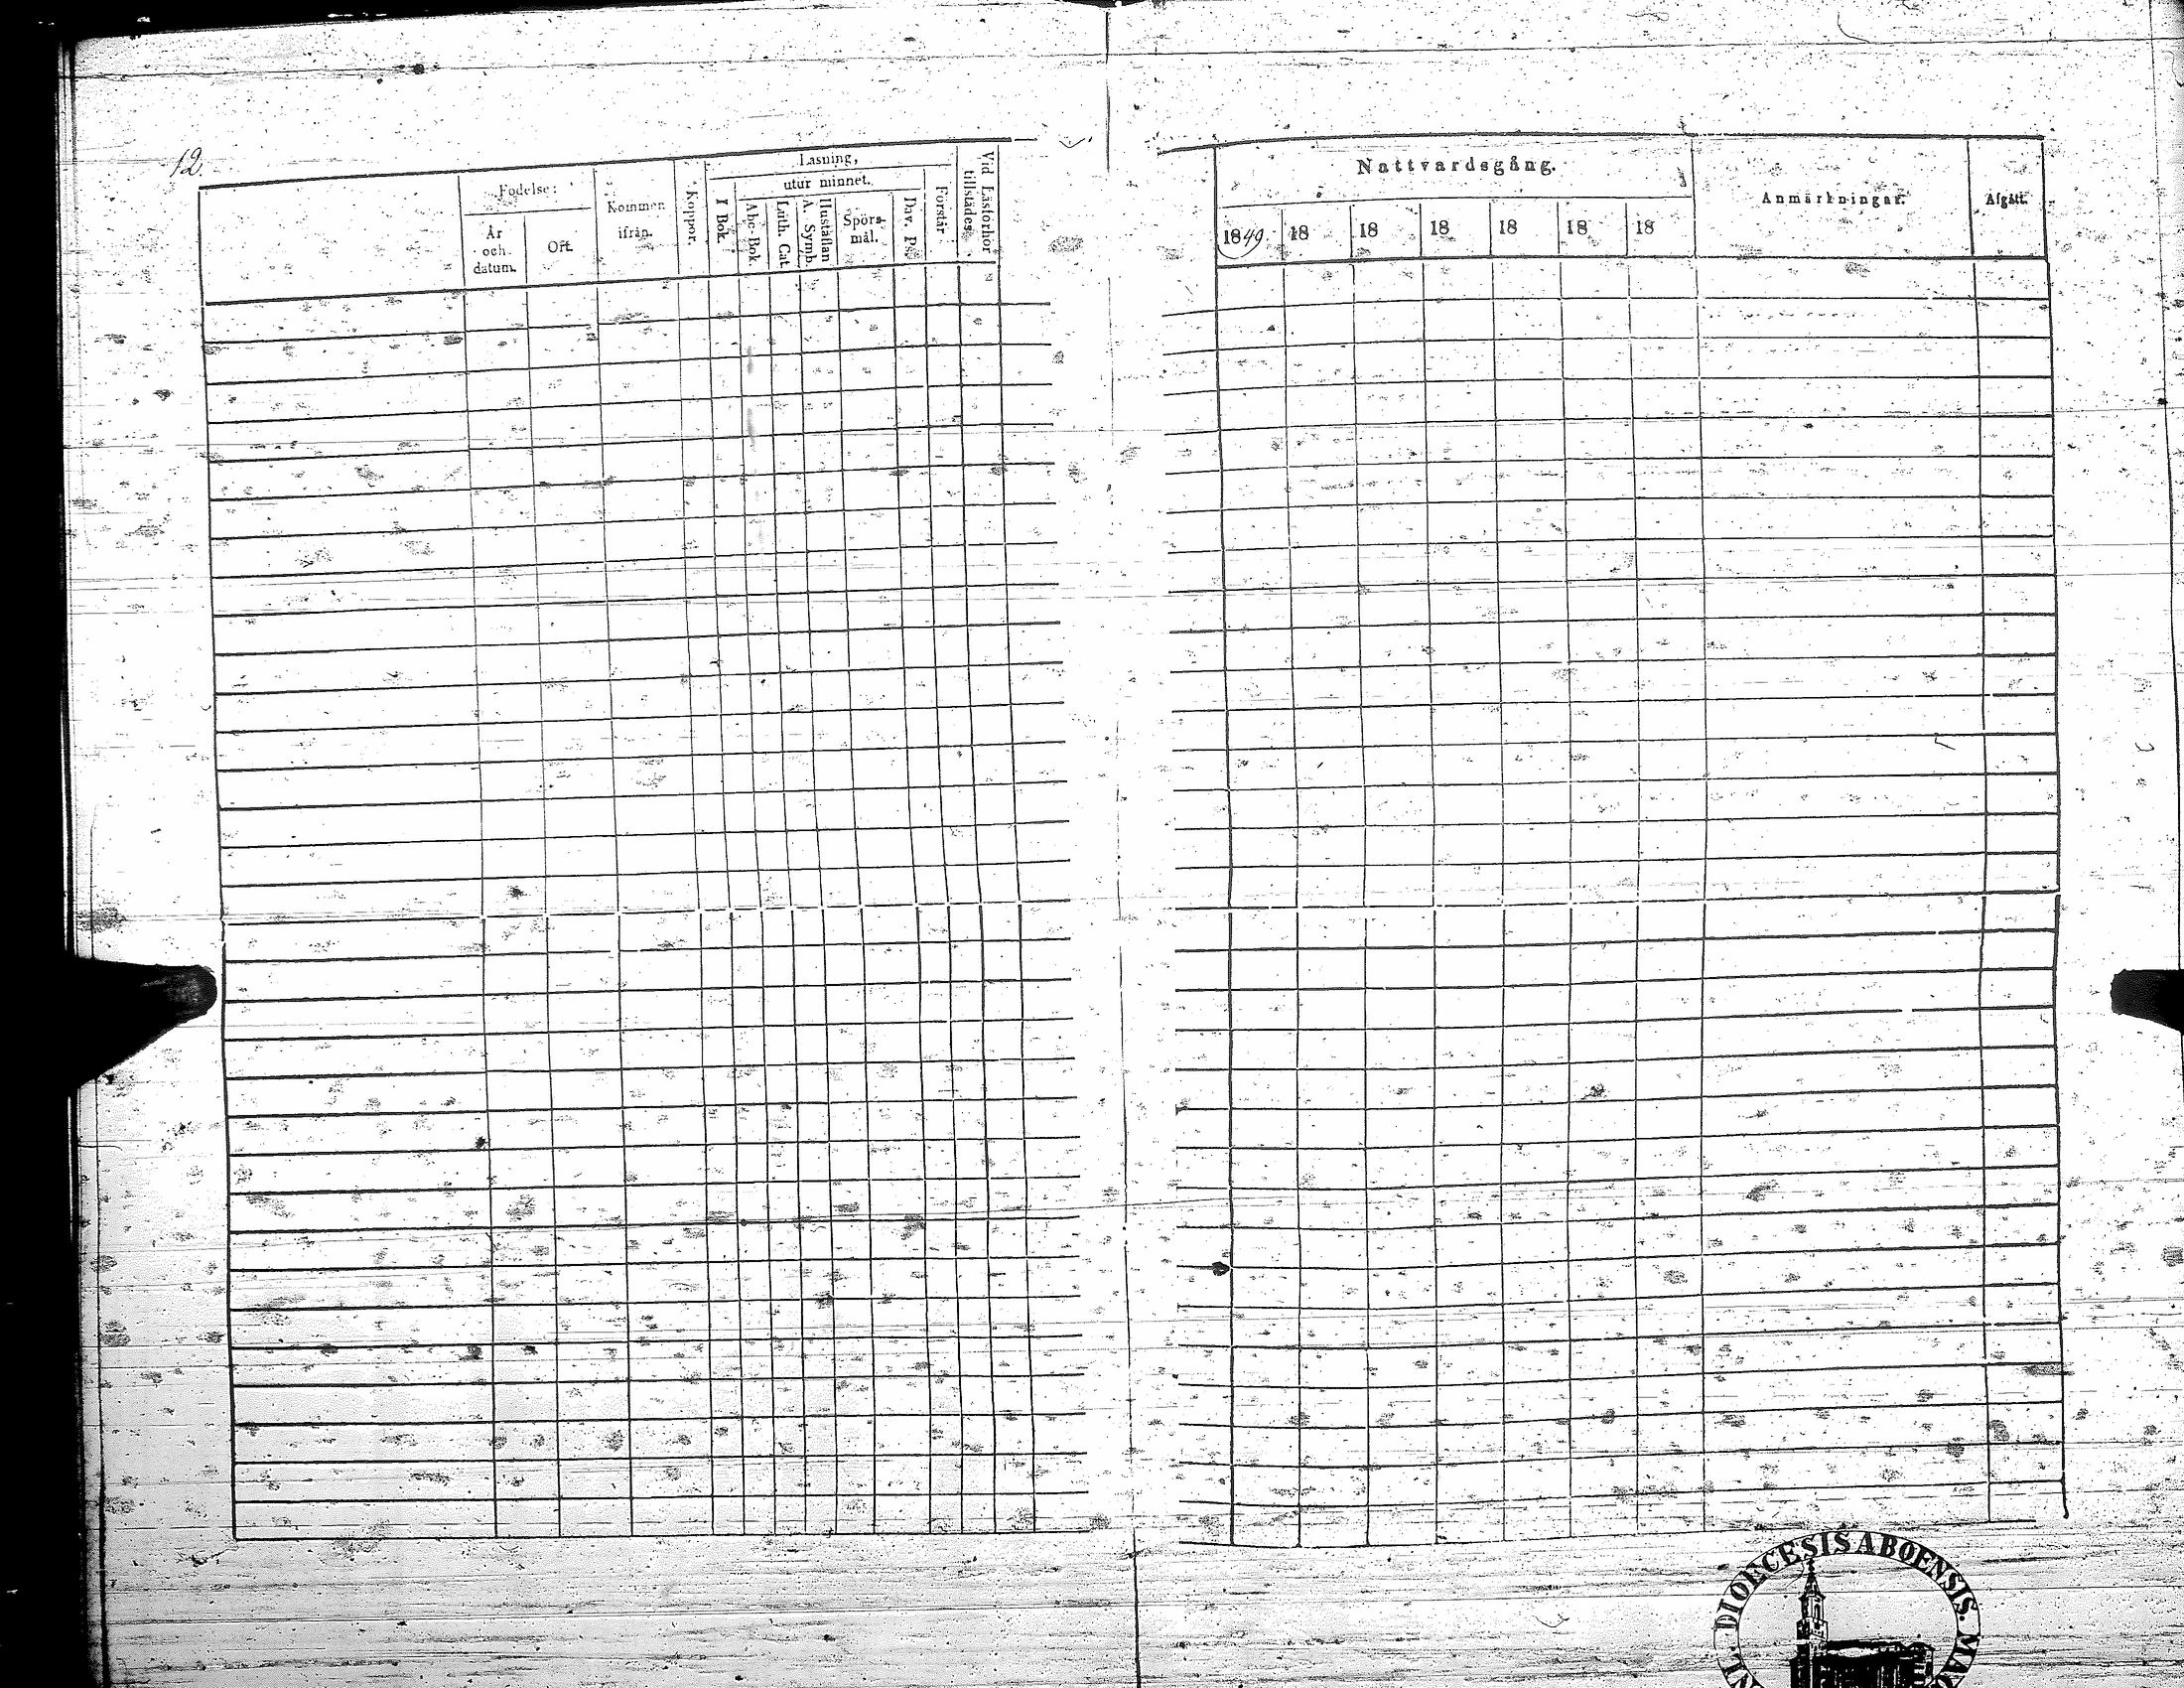 12
Födelse:
År och datum.
Ort.
Kommen ifrån.
Koppor.
Läsning,
utur minnet.
I Bok.
Abc-Bok.
Luth. Cat.
A. Symb. Hustaflan
Spörs-
mål.
Dav. Ps.
Förstår
Vid Läsförhör
tillstädes.
Nattvardsgång.
1849 18 18 18 18 18 18
Anmärkningar.
Afgått.
DIOECESIS ABOENSIS.